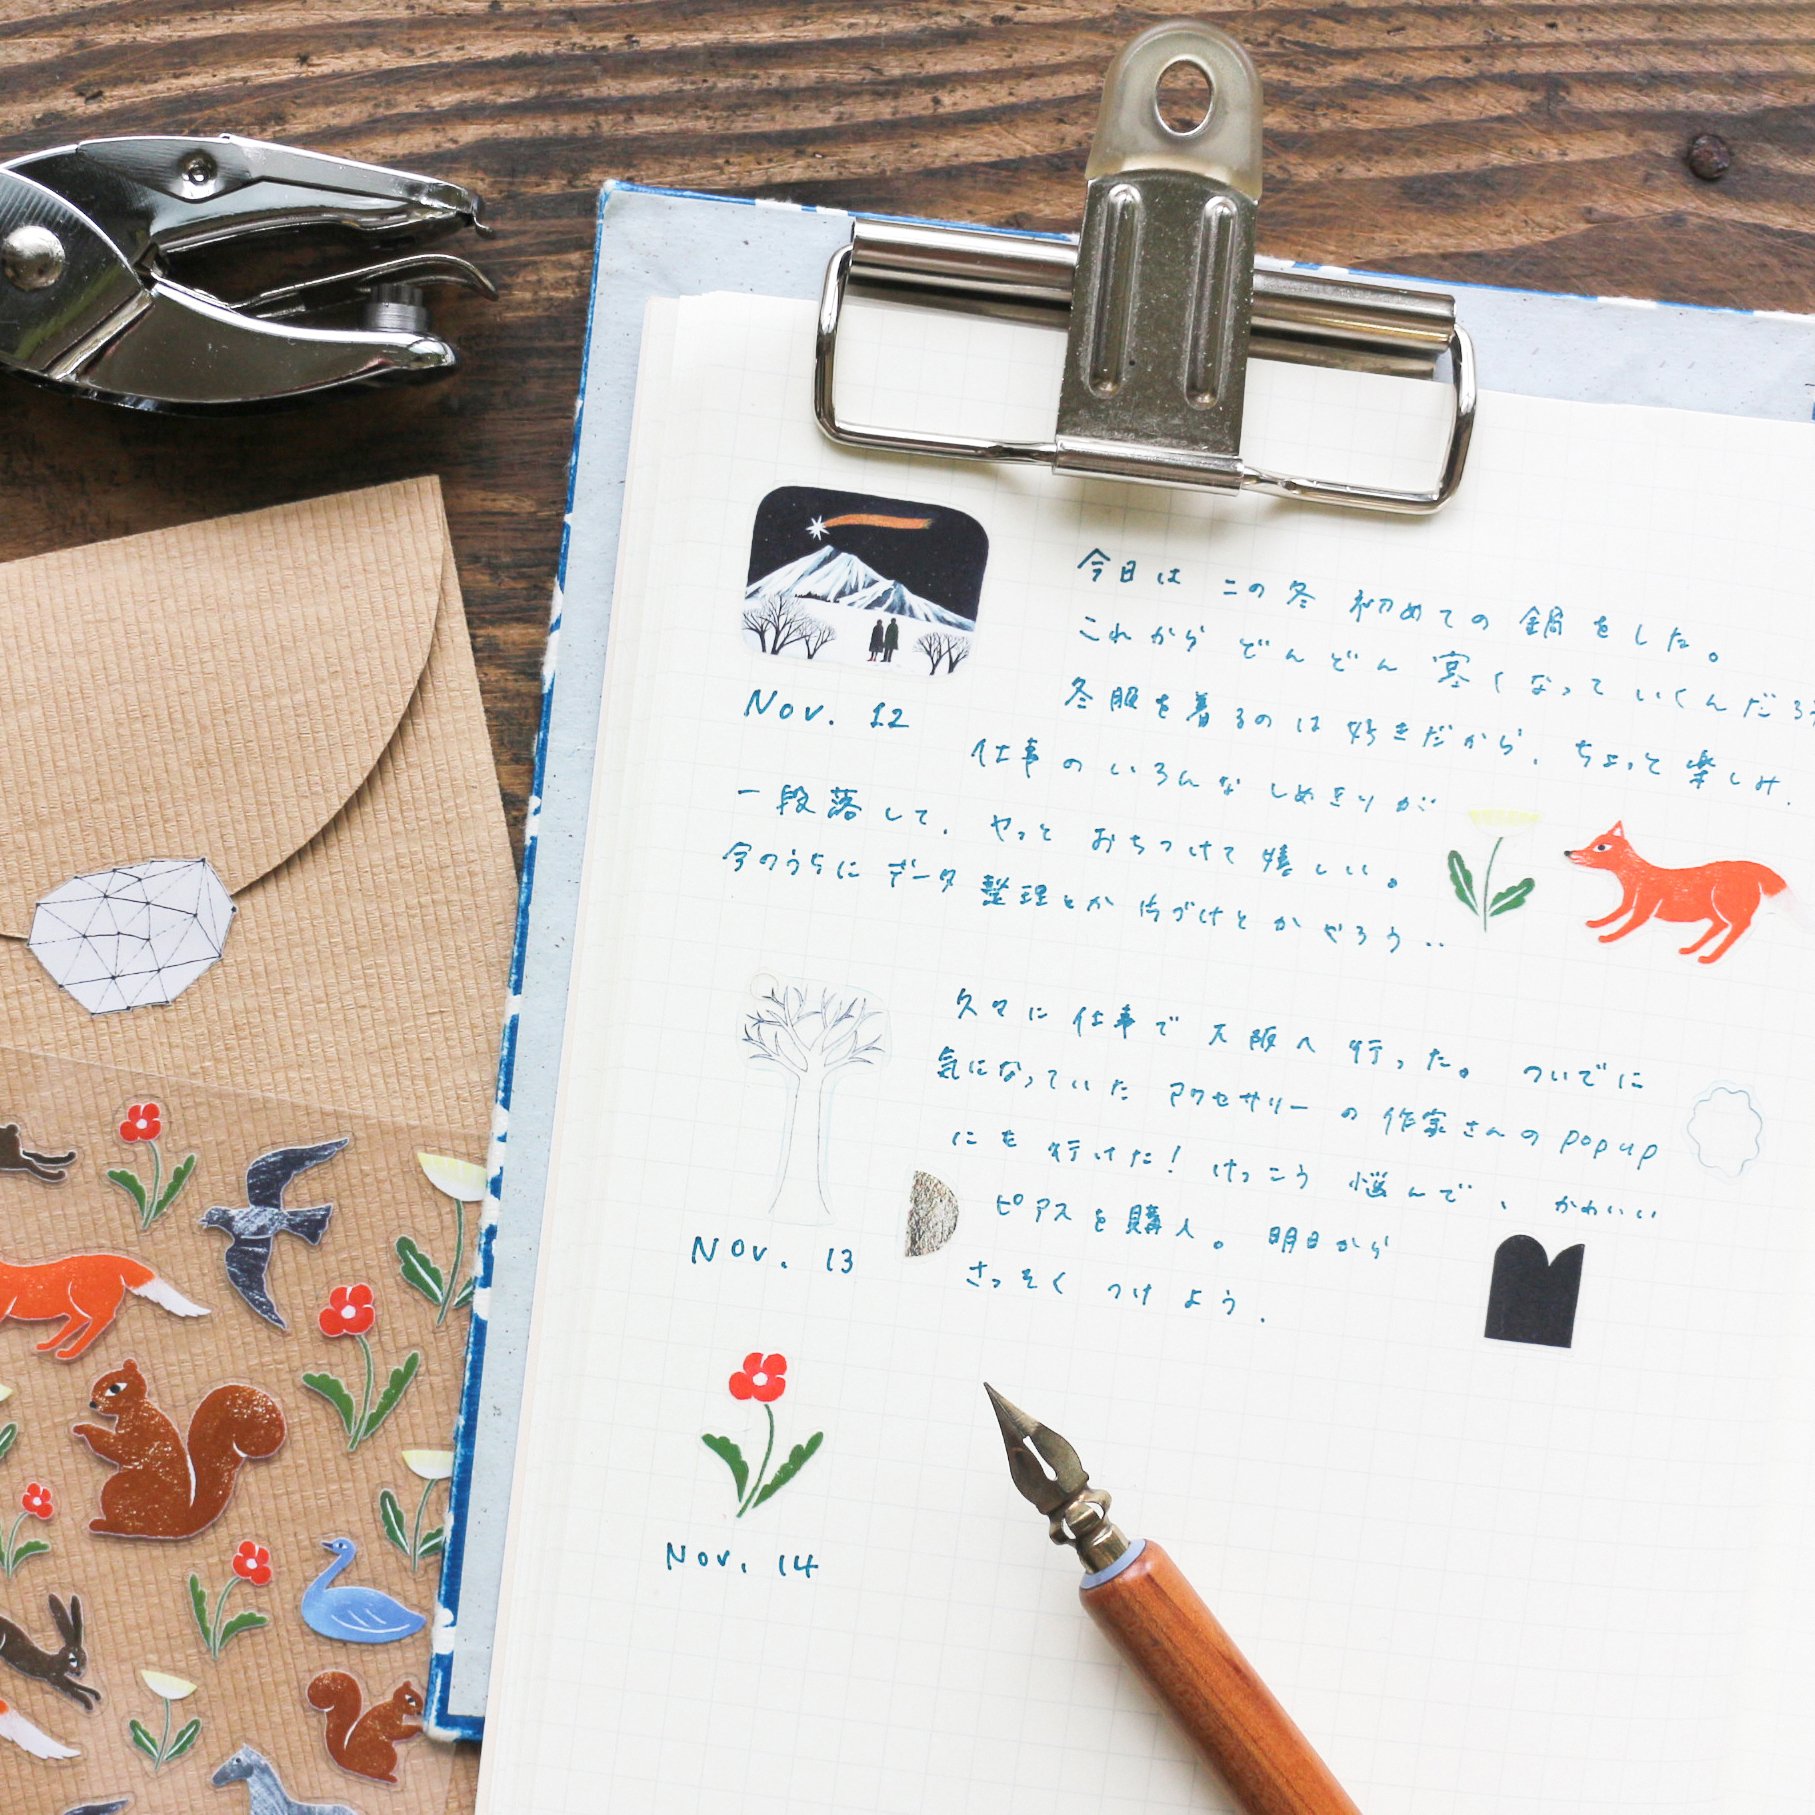 今日は この冬 初めての 鍋をした。
これから どんどん 寒くなって いくんだろう
冬服を着るのは 好きだから、ちょっと楽しみ.
Nov. 12
仕事の いろんな しめきりが
一段落して、やっと おちつけて 嬉しい。
今のうちに データ 整理とか 片づけとか やろう‥
久々に 仕事で 大阪へ 行った。 ついでに
気になっていた アクセサリーの 作家さんの popup
にも 行けた! けっこう 悩んで、かわいい
ピアスを 購入。 明日から
さっそく つけよう.
Nov. 13
Nov. 14